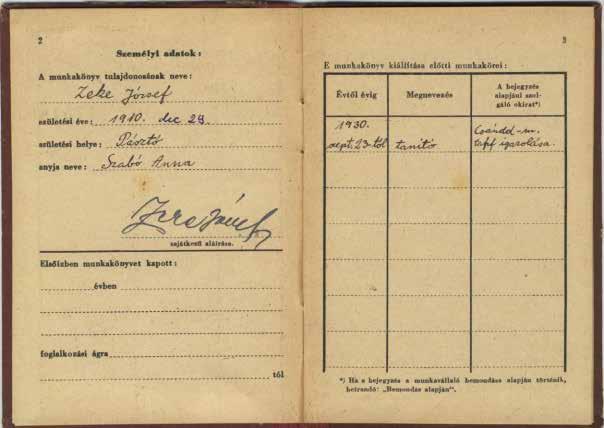 2
Személyi adatok:
A munkakönyv tulajdonosának neve:
Zeke József
születési éve: 1910. dec 29.
születési helye: Pásztó
anyja neve: Szabó Anna
Zeke József
sajátkezű aláírása.
Elsőízben munkakönyvet kapott:
évben
foglalkozási ágra
tól
3
E munkakönyv kiállítása előtti munkakörei:
Évtől évig
Megnevezés
A bejegyzés
alapjául szol-
gáló okirat*)
1930.
sept. 23-tól
tanító
igazolása.
*) Ha a bejegyzés a munkavállaló bemondása alapján történik,
beírandó: „Bemondás alapján".